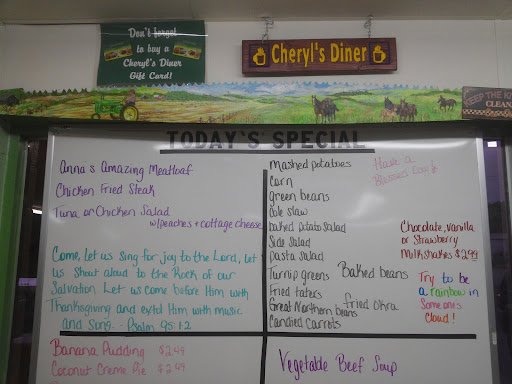 Don't forget
to buy a
Cheryl's Diner
Gift Card!
Cheryl's Diner
KEEP THE
CLEAN
TODAY'S SPECIAL
Anna's Amazing Meatloaf
Chicken Fried Steak
Tuna or Chicken Salad
w/peaches + cottage cheese
Come, let us sing for joy to the Lord, let
us shout aloud to the Rock of our
Salvation Let us come before Him with
Thanksgiving and extol Him with music
and song. - Psalm 95:1-2
Mashed potatoes
Corn
green beans
Cole slaw
baked potato salad
Side Salad
pasta salad
Turnip greens
Baked beans
Fried taters
Great Northern beans
fried okra
Candied Carrots
Have a
Blessed Day!
Chocolate, Vanilla
or Strawberry
Milkshakes $2.99
Try to be
a rainbow in
Someone's
Cloud!
Banana Pudding $2.49
Coconut Creme Pie $2.99
Vegetable Beef Soup